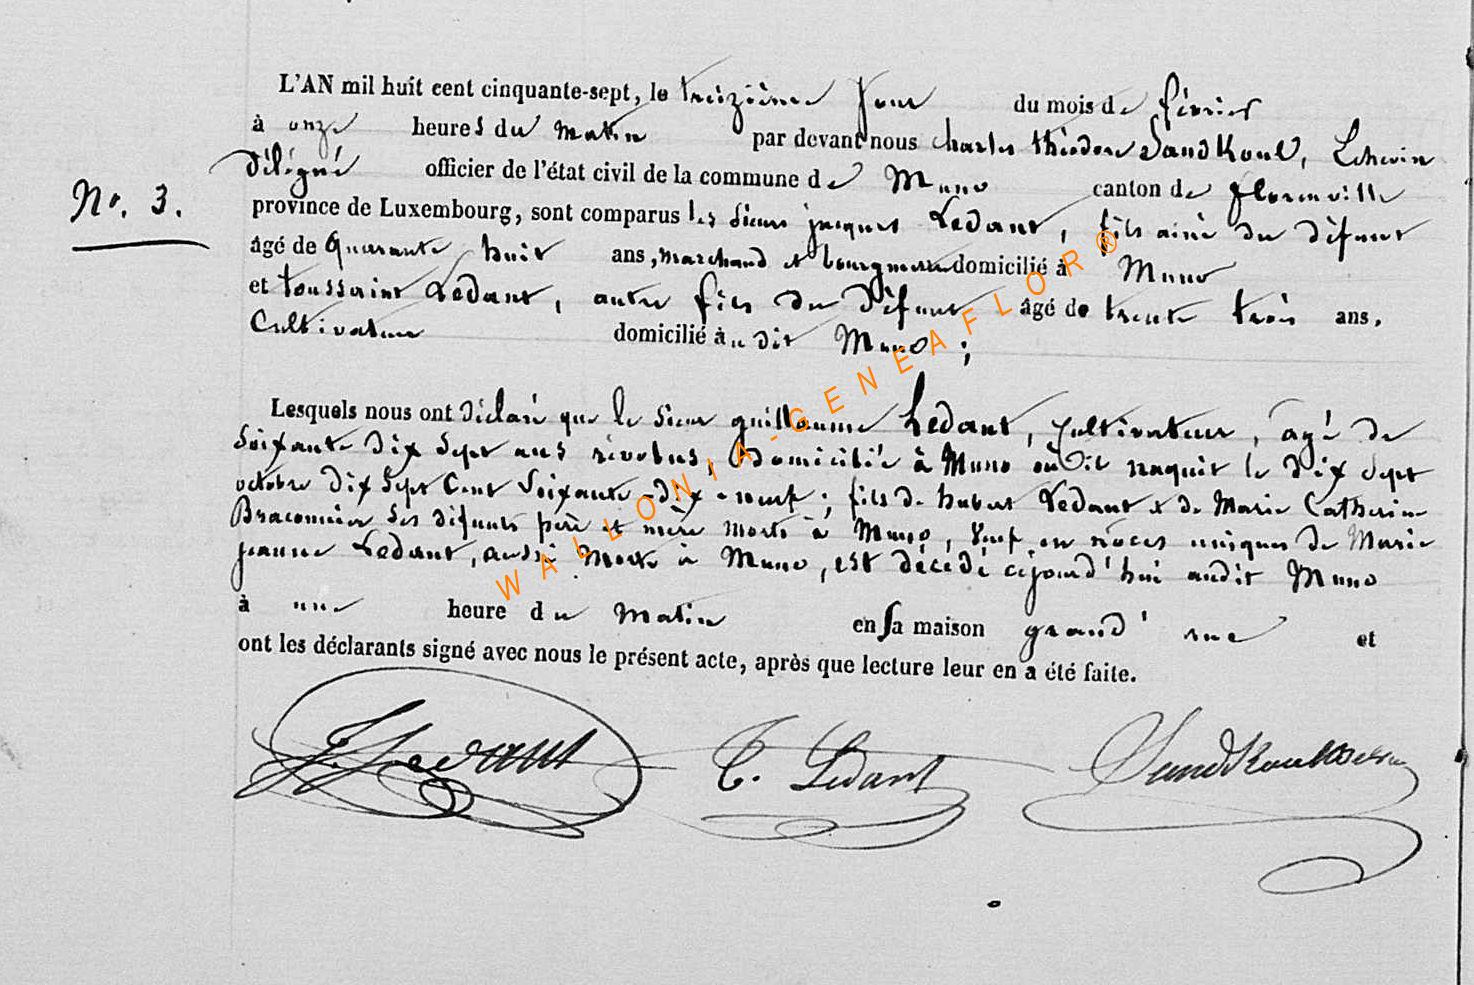 L'AN mil huit cent cinquante-sept, le treizième jour du mois de février
à onze heures du matin par devant nous charles théodore Sandkoul, Echevin
No. 3.
délégué officier de l'état civil de la commune de Muno canton de florenville
province de Luxembourg, sont comparus les sieurs jacques Ledant, fils ainé du défunt
âgé de quarante huit ans, marchand et bourgmestre domicilié à Muno
et toussaint Ledant, autre fils du défunt âgé de trente trois ans.
Cultivateur domicilié audit Muno ;
Lesquels nous ont déclaré que le sieur guillaume Ledant, cultivateur, agé de
soixante dix sept ans révolus, domicilié à Muno où il naquit le dix sept
octobre dix sept cent soixante-dix-neuf ; fils de hubert Ledant & de Marie Catherine
Braconnier ses défunts père et mère morts à Muno, veuf en nôces uniques de Marie
jeanne Ledant, aussi morte à Muno, est décédé cejourd'hui audit Muno
à une heure du matin en sa maison grand' rue et
ont les déclarants signé avec nous le présent acte, après que lecture leur en a été faite.
J. Ledant T. Ledant
WALLONIA-GENEAFLOR®